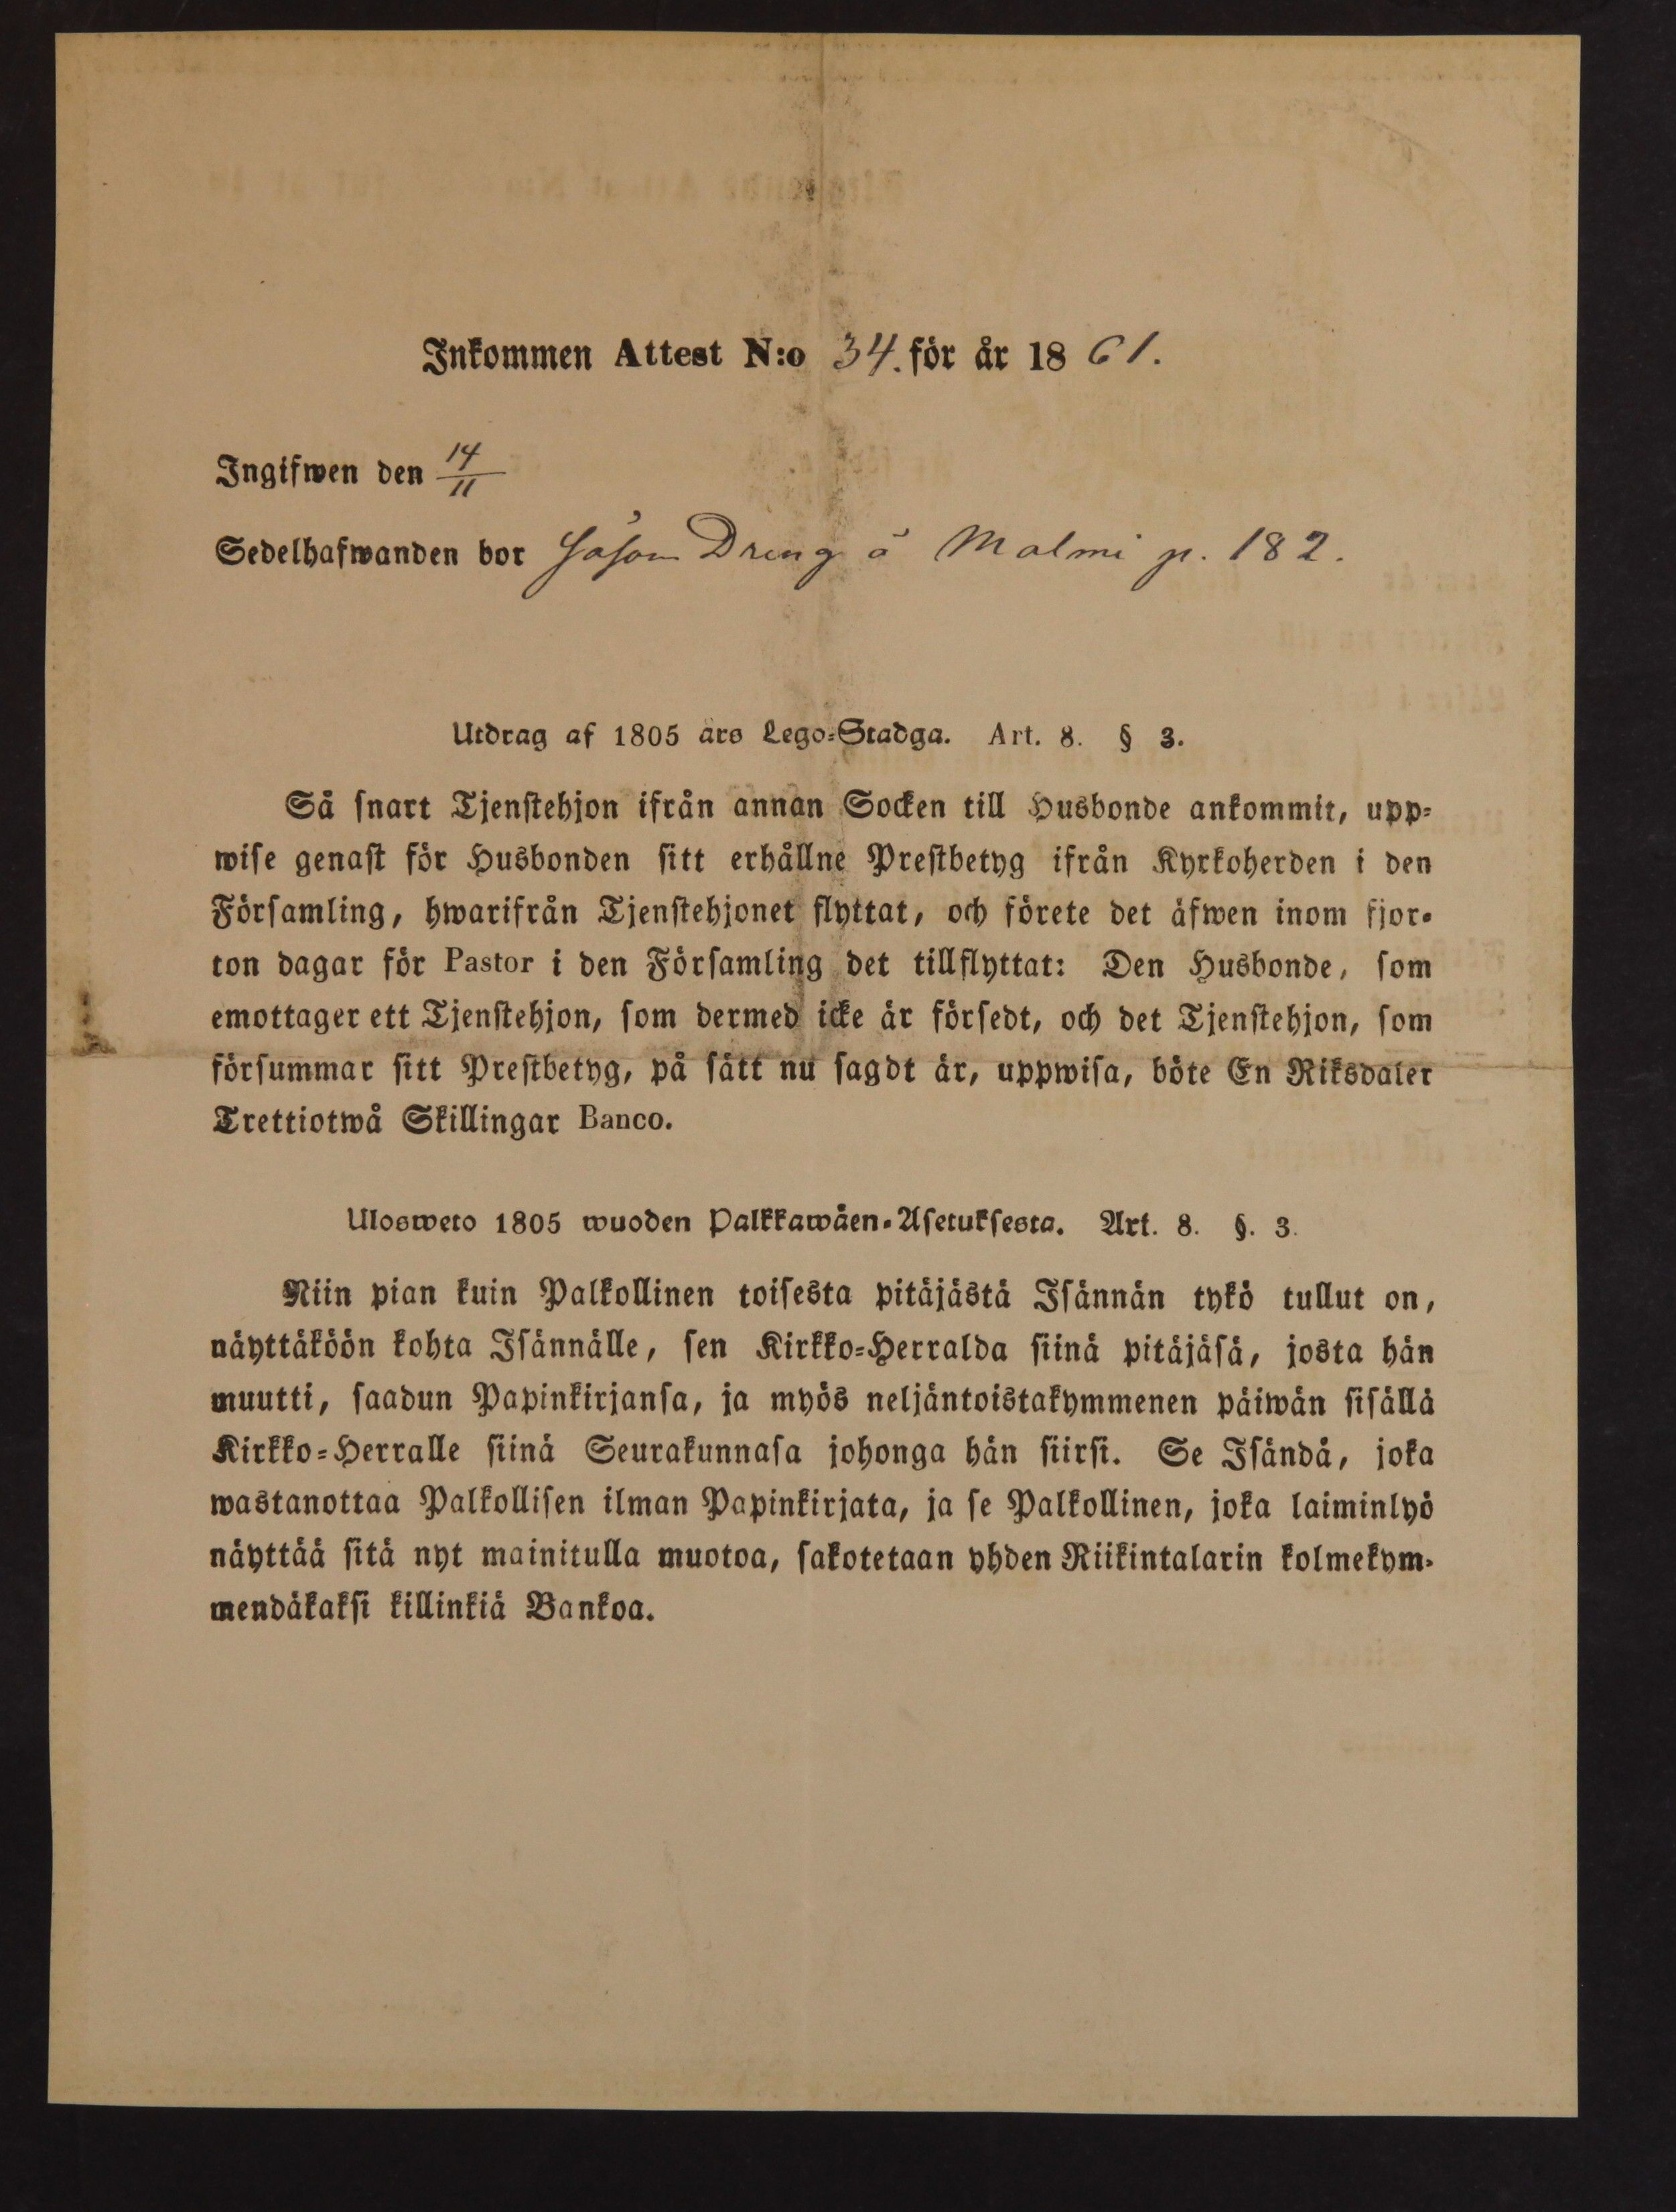 Inkommen Attest N:o 34. för år 1861.
Ingifwen den 14/11
Sedelhafwanden bor såsom Dreng å Malmi p. 182.
Utdrag af 1805 års Lego-Stadga. Art. 8. § 3.
Så snart Tjenstehjon ifrån annan Socken till Husbonde ankommit, upp-
wise genast för Husbonden sitt erhållne Prestbetyg ifrån Kyrkoherden i den
Församling, hwarifrån Tjenstehjonet flyttat, och förete det äfwen inom fjor-
ton dagar för Pastor i den Församling det tillflyttat: Den Husbonde, som
emottager ett Tjenstehjon, som dermed icke är försedt, och det Tjenstehjon, som
försummar sitt Prestbetyg, på sätt nu sagdt är, uppwisa, böte En Riksdaler
Trettiotwå Skillingar Banco.
Ulosweto 1805 wuoden Palkkawäen-Asetuksesta. Art. 8. §. 3.
Niin pian kuin Palkollinen toisesta pitäjästä Isännän tykö tullut on,
näyttäköön kohta Isännälle, sen Kirkko-Herralda siinä pitäjäsä, josta hän
muutti, saadun Papinkirjansa, ja myös neljäntoistakymmenen päiwän sisällä
Kirkko-Herralle siinä Seurakunnasa johonga hän siirsi. Se Isändä, joka
wastanottaa Palkollisen ilman Papinkirjata, ja se Palkollinen, joka laiminlyö
näyttää sitä nyt mainitulla muotoa, sakotetaan yhden Riikintalarin kolmekym-
mendäkaksi killinkiä Bankoa.